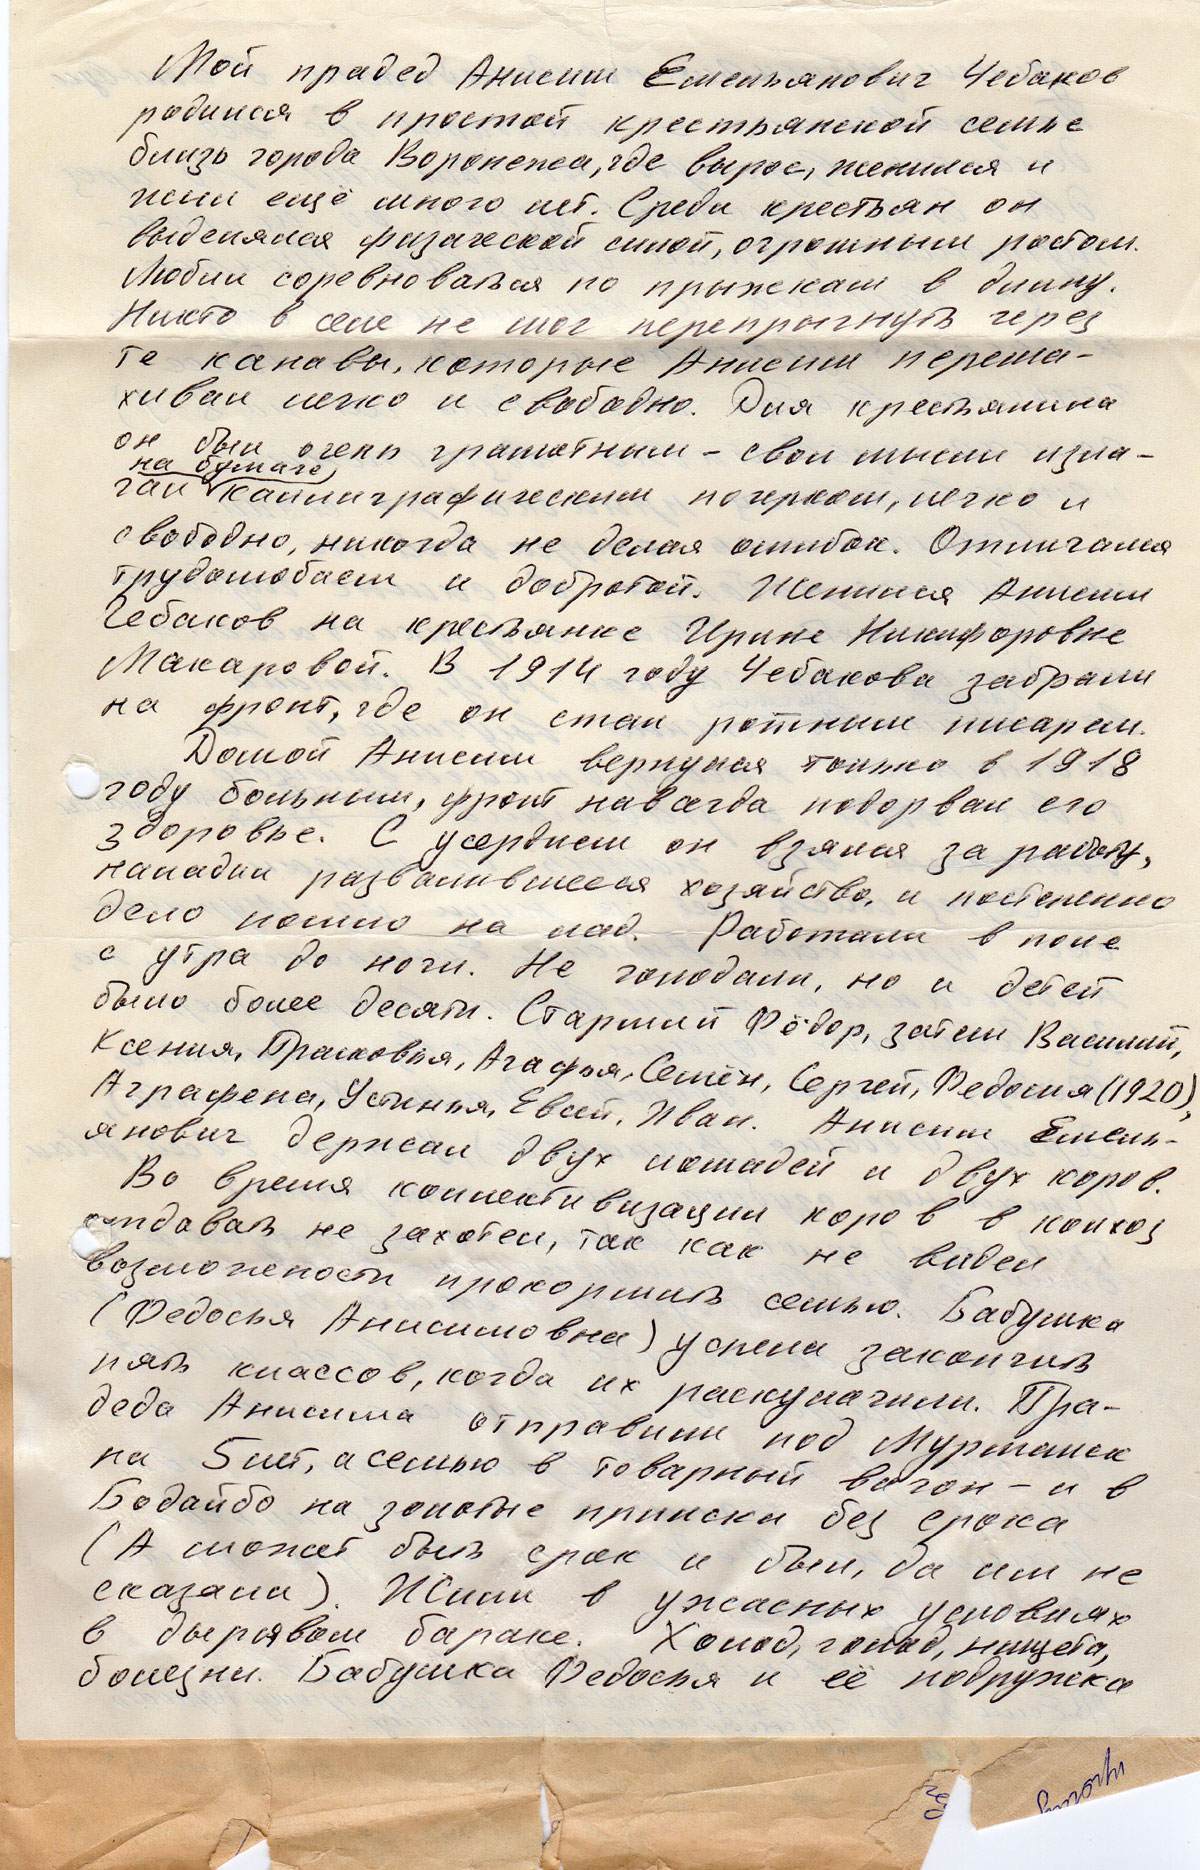 Мой прадед Анисим Емельянович Чебаков
родился в простой крестьянской семье
близь города Воронежа, где вырос, женился и
жил ещё много лет. Среди крестьян он
выделялся физической силой, огромным ростом.
Любил соревноваться по прыжкам в длину.
Никто в селе не мог перепрыгнуть через
те канавы, которые Анисим переша-
хивал легко и свободно. Для крестьянина
он был очень грамотным - свои мысли изла-
на бумаге
гал каллиграфическим почерком, легко и
свободно, никогда не делая ошибок. Отличался
трудолюбием и добротой. Женился Анисим
Чебаков на крестьянке Ирине Никифоровне
Макаровой. В 1914 году Чебакова забрали
на фронт, где он стал ротным писарем.
Домой Анисим вернулся только в 1918
году больным, фронт навсегда подорвал его
здоровье. С усердием он взялся за работу,
наладил развалившееся хозяйство, и постепенно
дело пошло на лад. Работали в поле
с утра до ночи. Не голодали, но и детей
было более десяти. Старший Фёдор, затем Василий,
Ксения, Прасковья, Агафья, Семён, Сергей, Федосия (1920),
Аграфена, Устинья, Евсей, Иван. Анисим Емель-
янович держал двух лошадей и двух коров.
Во время коллективизации коров в колхоз
отдавать не захотел, так как не видел
возможности прокормить семью. Бабушка
(Федосья Анисимовна) успела закончить
пять классов, когда их раскулачили. Пра-
деда Анисима отправили под Мурманск
на 5 лет, а семью в товарный вагон - и в
Бодайбо на золотые прииски без срока
(А может быть срок и был, да им не
сказали). Жили в ужасных условиях
в дырявом бараке. Холод, голод, нищета,
болезни. Бабушка Федосья и её подружка